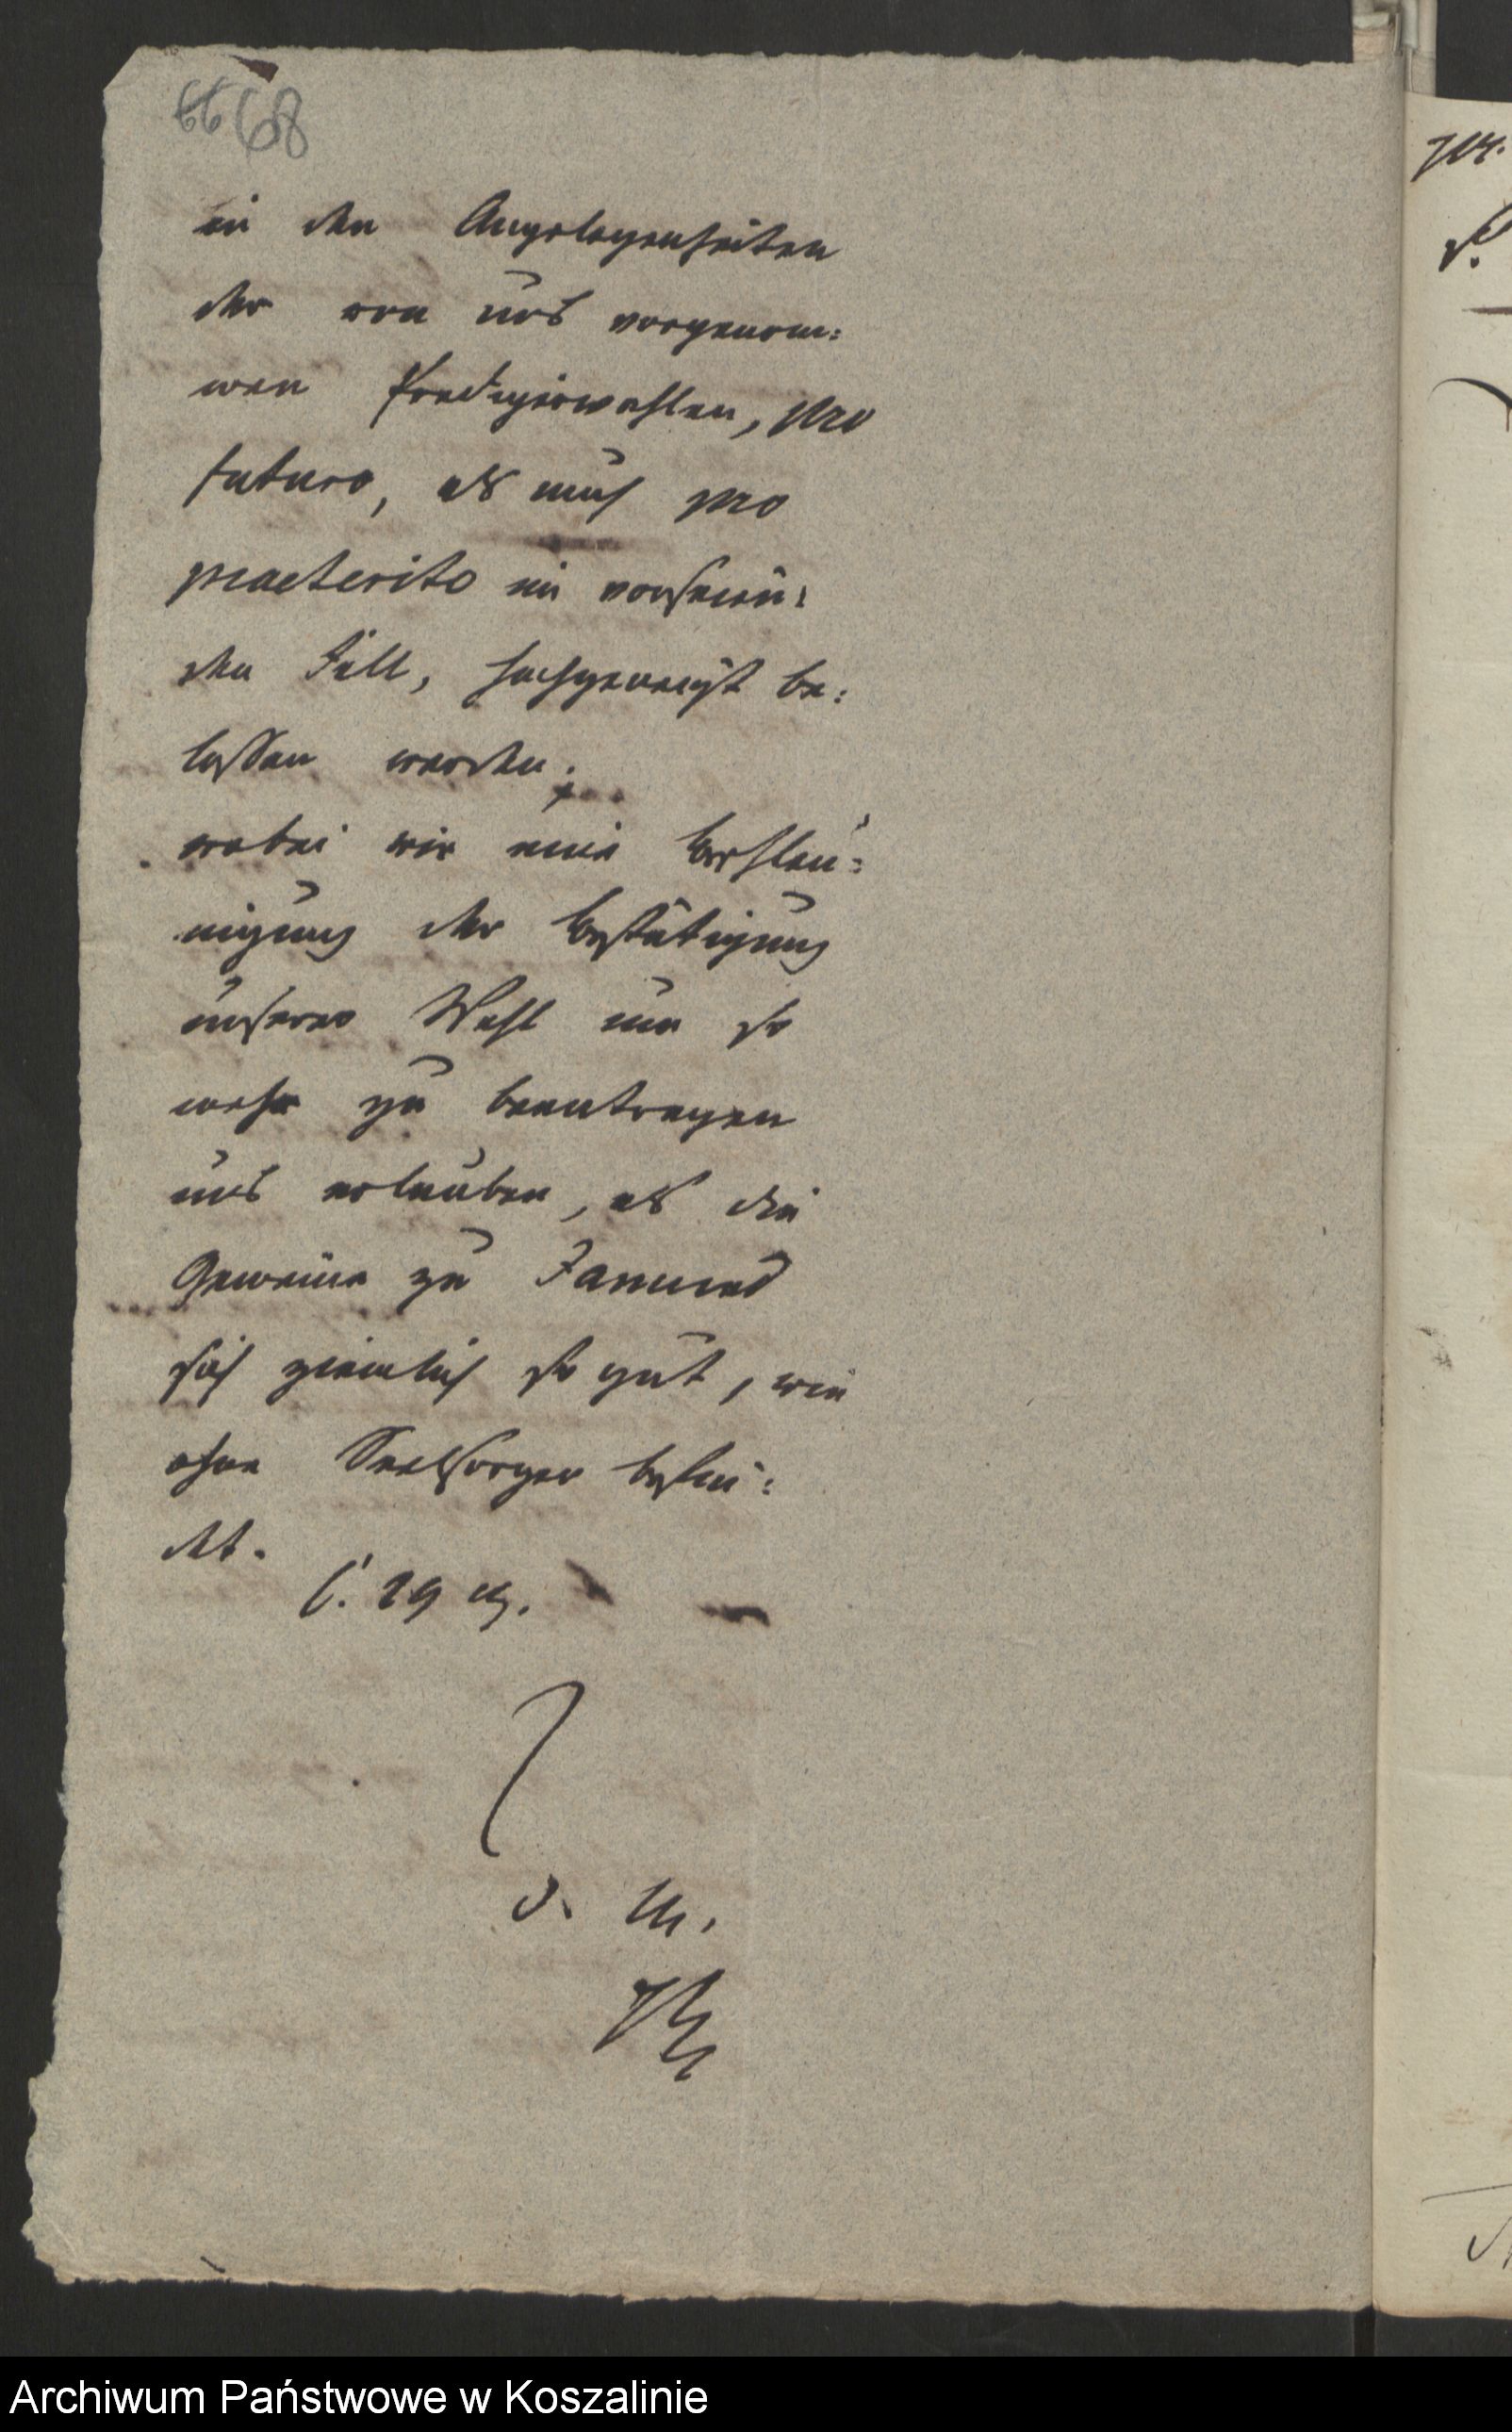 66 68
in den Angelegenheiten
der von uns vorgenom:
men Predigerwahlen, pro
futuro, als auch pro
praeterito im vorseien:
den Fall, hochgeneigt be:
lassen werden;
wobei wir eine Beschleu:
nigung der Bestätigung
unserer Wahl um so
mehr zu beantragen
uns erlauben, als die
Gemeine zu Jamund
sich ziemlich so gut, wie
ohne Seelsorger befin:
det.
C. 29
d. M.
Archiwum Państwowe w Koszalinie